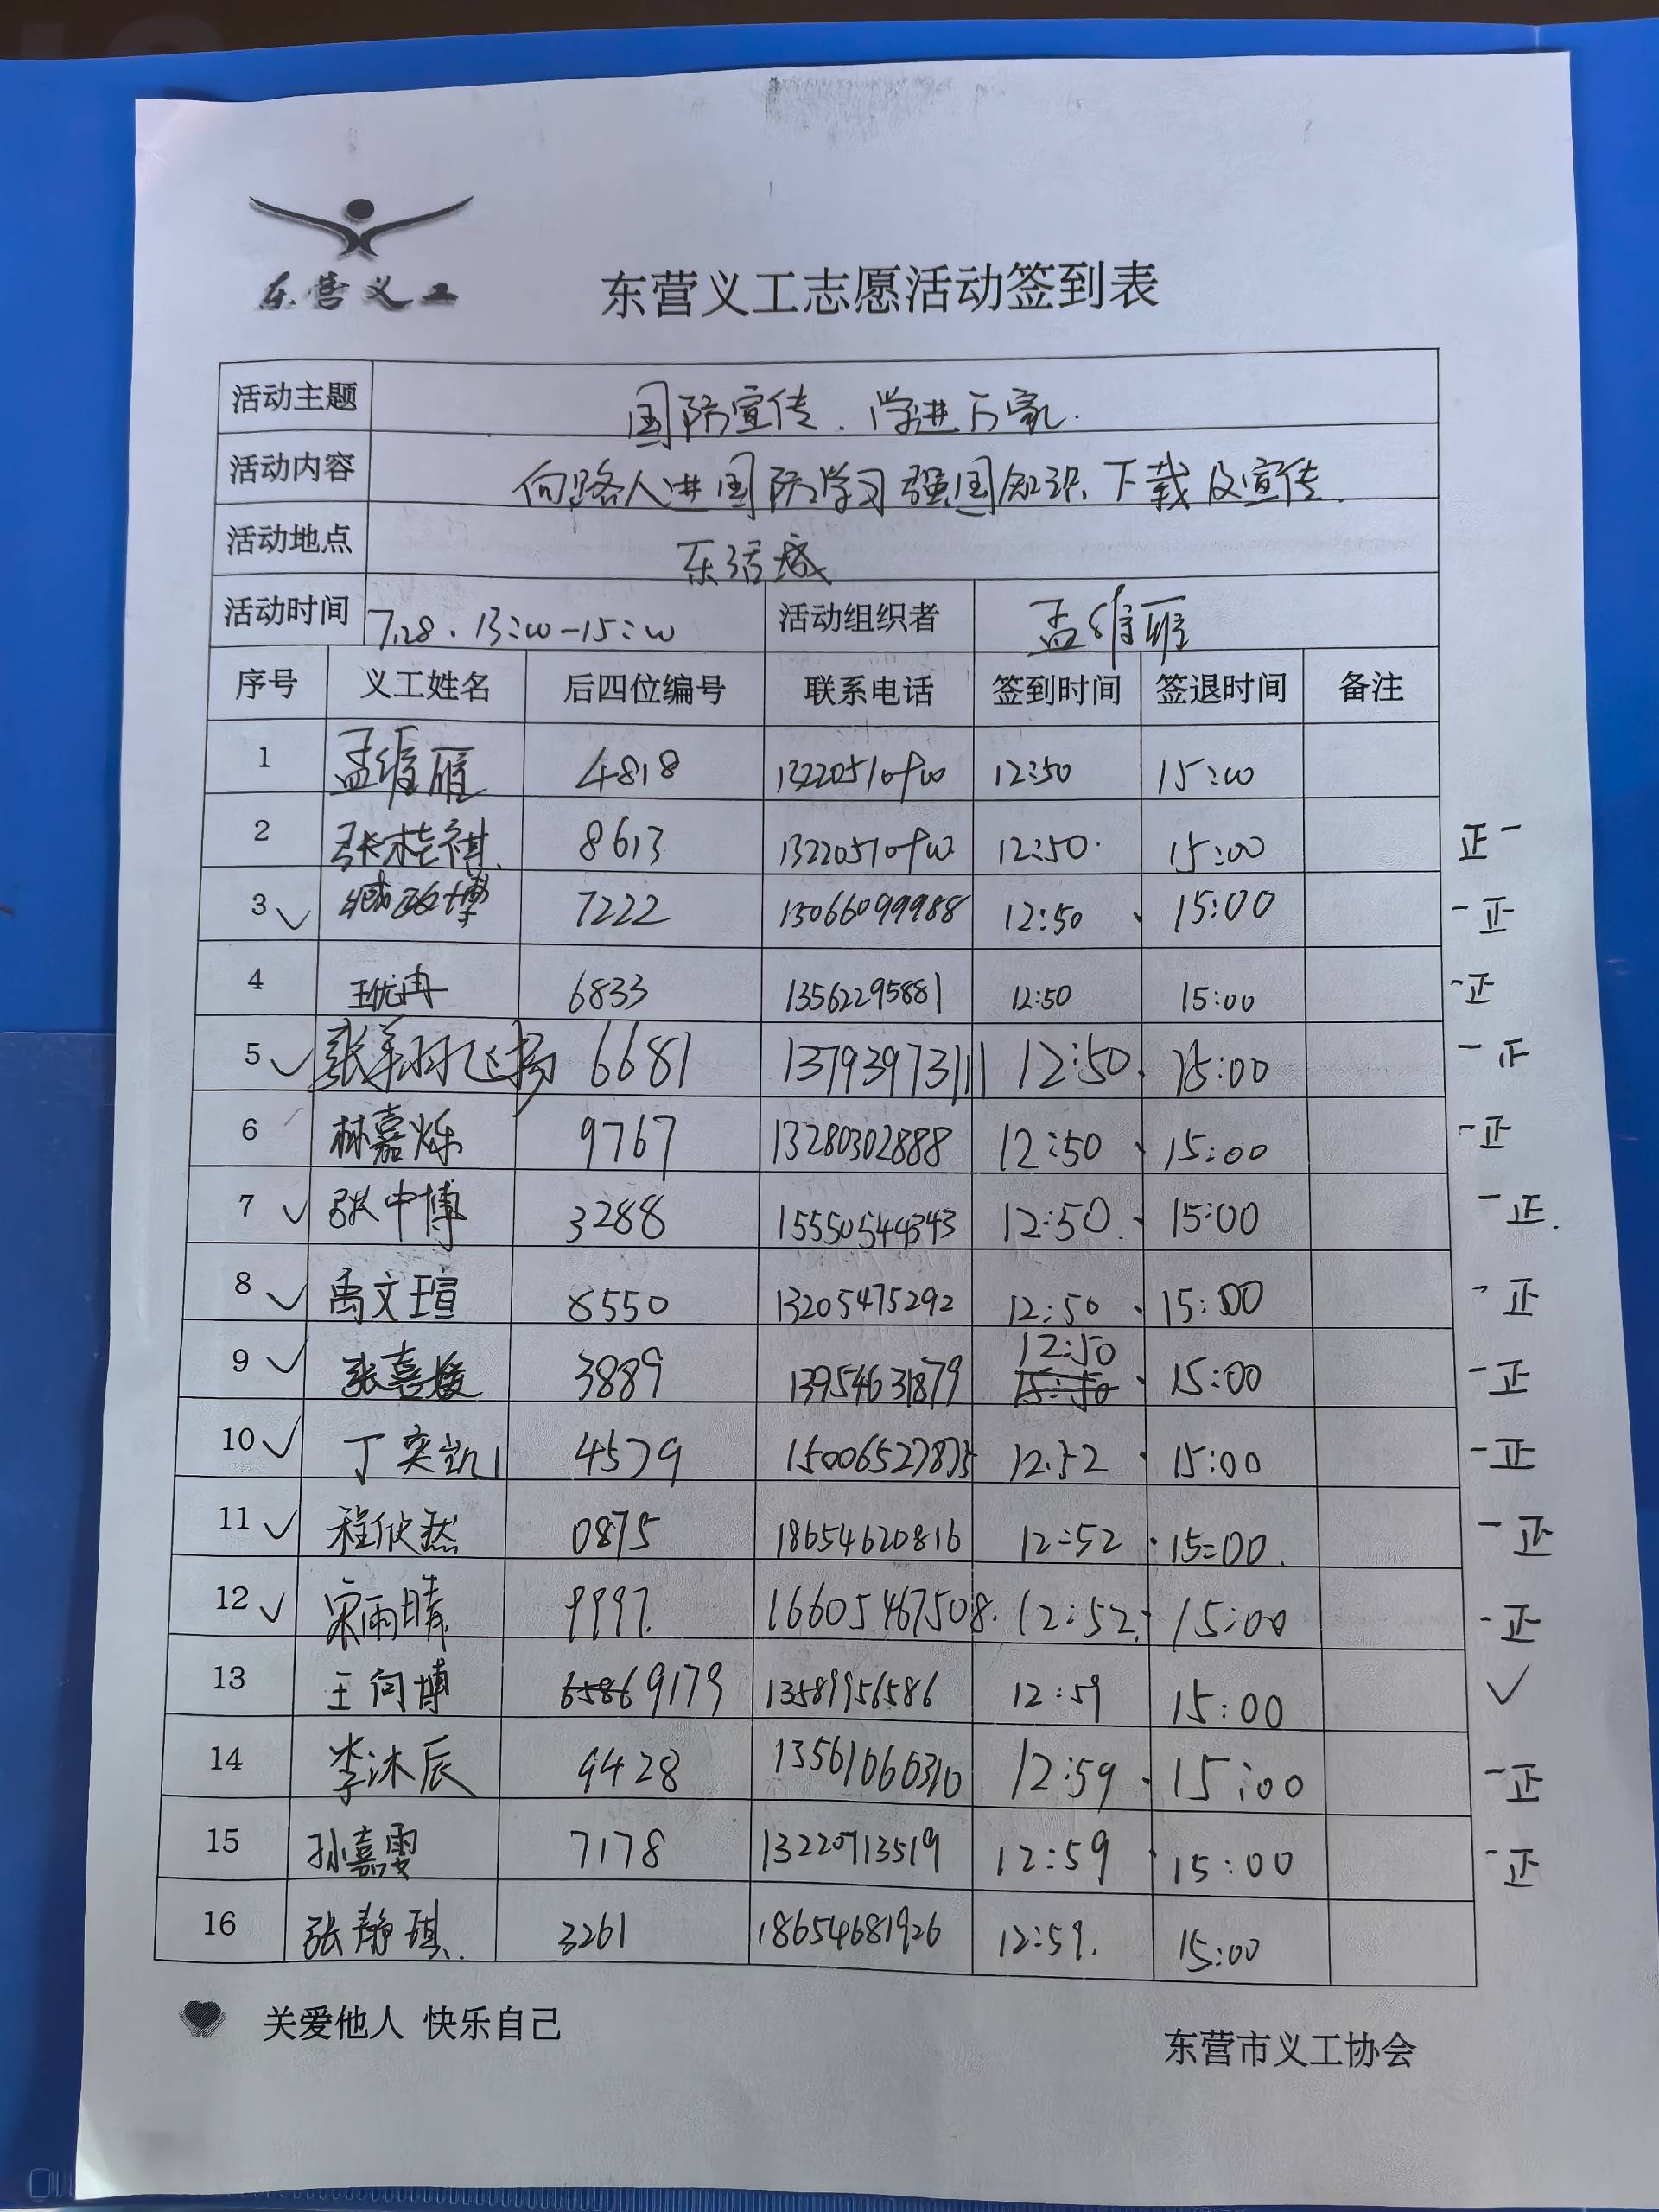 东营义工
东营义工志愿活动签到表
活动主题 国防宣传、学进万家.
活动内容 向路人进国防学习强国知识、下载及宣传.
活动地点 东活城
活动时间 7.28.13:00-15:00 活动组织者 孟维雁
序号 义工姓名 后四位编号 联系电话 签到时间 签退时间 备注
1 孟维雁 4818 12:50 15:00
2 张桂祺 8613 12:50 15:00 正一
3 臧政博 7222 13066099988 12:50 15:00 一正
4 王优冉 6833 13562295881 12:50 15:00 一正
5 张羊羽飞扬 6681 13793973111 12:50 15:00 一正
6 林嘉烁 9767 13280302888 12:50 15:00 一正
7 张中博 3288 15550544343 12:50 15:00 一正.
8 禹文瑄 8550 13205475292 12:50 15:00 一正
9 张喜媛 3889 13954631879 12:50 15:50 15:00 一正
10 丁奕凯 4579 15006527875 12:52 15:00 一正
11 程攸然 0875 18654620816 12:52 15:00. 一正
12 宋雨晴 9997. 16605467508. 12:52 15:00 一正
13 王向博 6586 9179 13589956586 12:59 15:00
14 李沐辰 9428 13561066310 12:59 15:00 一正
15 孙嘉雯 7178 13220713519 12:59 15:00 一正
16 张静琪. 3261 18654681926 12:59. 15:00
关爱他人 快乐自己
东营市义工协会